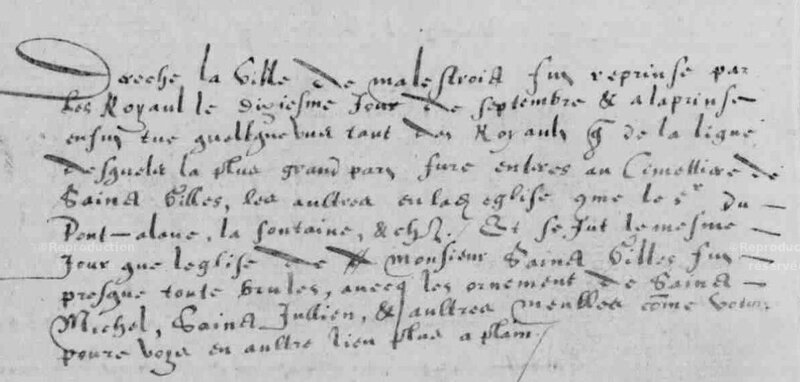 Dereche la Ville de malestroit fut reprinse par
les Royaul le dixiesme Jour de septembre & a la prinse
enfut tue quelque uns tant des Royaulx q de la ligue
desquelz la plus grand part fure enteres au Cimettiere de
Saint Gilles, les aultres en lad eglise 9me le sr du
Pont-alane, la fontaine, & Et se fut le mesme
Jour que leglise de monsieur Saint Gilles fut
presque toute brulee, avecq les ornement de Saint
Michel, Saint Jullien, & aultres meubles cōme
poure voys en aultre lieu plus a plain
©Reproduction
©Reproduction
reserve